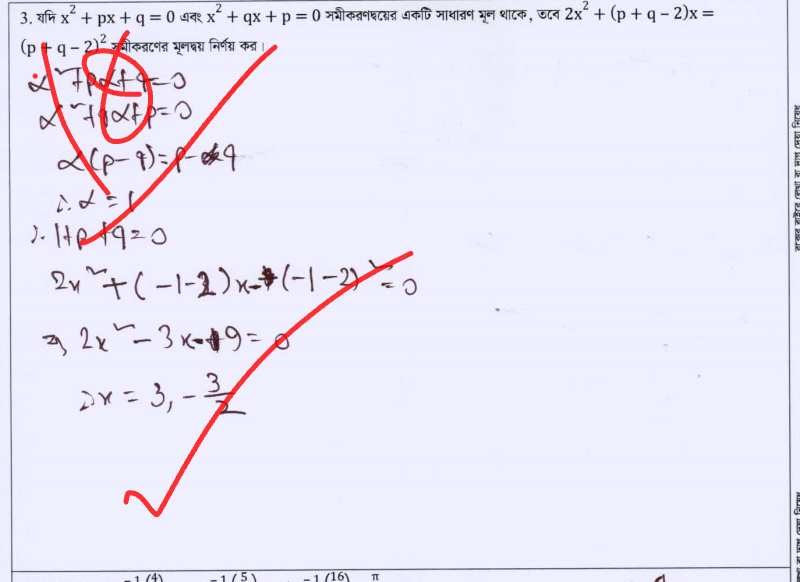 3. যদি x² + px + q = 0 এবং x² + qx + p = 0 সমীকরণদ্বয়ের একটি সাধারণ মূল থাকে, তবে 2x² + (p + q - 2)x =
(p + q - 2)² সমীকরণের মূলদ্বয় নির্ণয় কর।
α² + pα + q = 0
α² + qα + p = 0
α(p - q) = p - q
∴ α = 1
∴ 1 + p + q = 0
2x² + (-1-2)x - (-1-2)² = 0
⇒ 2x² - 3x - 9 = 0
∴ x = 3, -3/2
-1(4) -1(5) -1(16) π